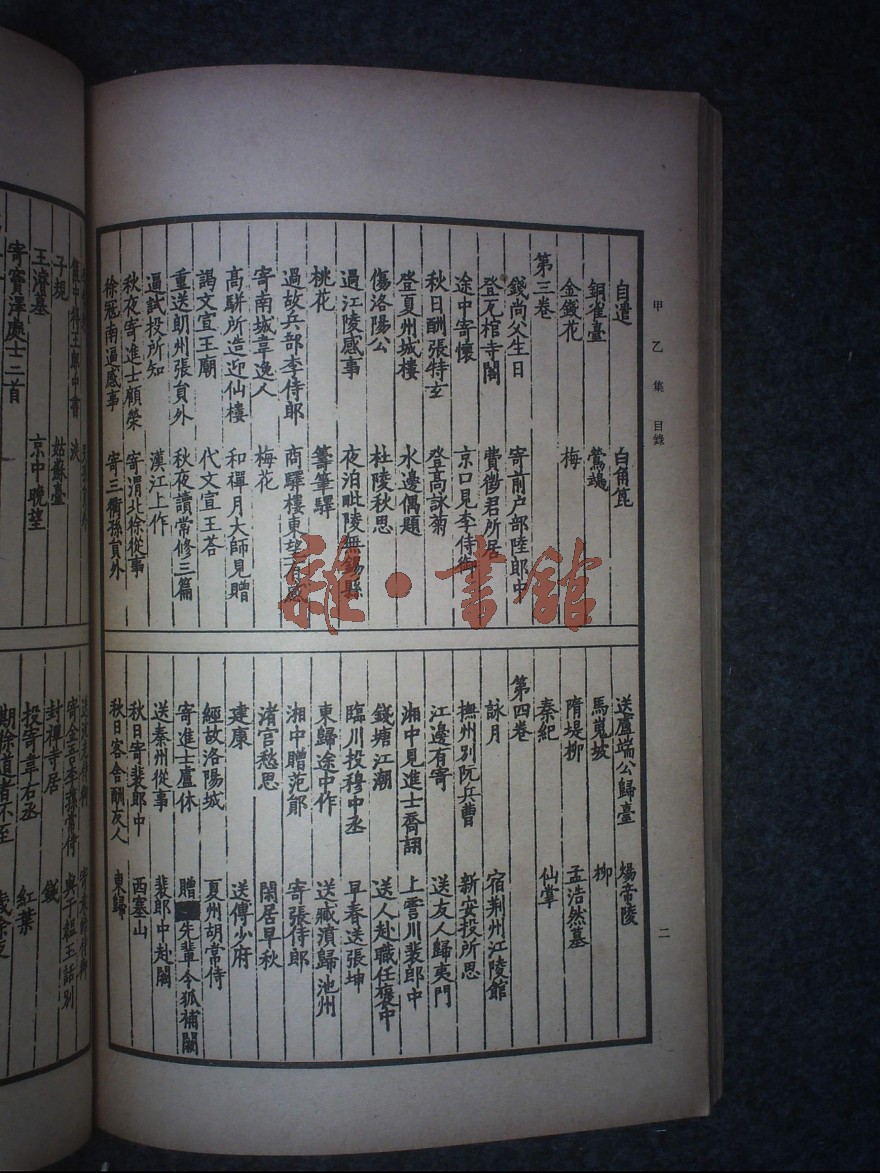 甲乙集 目錄 二
自遣 白角篦
銅雀臺 鶯聲
金錢花 梅
第三卷
錢尚父生日 寄前户部陸郎中
登瓦棺寺閣 費徵君所居
途中寄懷 京口見李侍御
秋日酬張特玄 登高詠菊
登夏州城樓 水邊偶題
傷洛陽公 杜陵秋思
過江陵感事 夜泊毗陵無錫縣
桃花 籌筆驛
過故兵部李侍郎 商驛樓東望有感
寄南城韋逸人 梅花
高駢所造迎仙樓 和禪月大師見贈
謁文宣王廟 代文宣王荅
重送朗州張員外 秋夜讀常修三篇
逼試投所知 漢江上作
秋夜寄進士顧榮 寄渭北徐從事
徐寇南逼感事 寄三衢孫員外
送盧端公歸臺 煬帝陵
馬嵬坡 柳
隋堤柳 孟浩然墓
秦紀 仙掌
第四卷
詠月 宿荆州江陵館
撫州別阮兵曹 新安投所思
江邊有寄 送友人歸夷門
湘中見進士喬詡 上霅川裴郎中
錢塘江潮 送人赴職任襃中
臨川投穆中丞 早春送張坤
東歸途中作 送臧濆歸池州
湘中贈范郎 寄張侍郎
渚宮愁思 閑居早秋
建康 送傅少府
經故洛陽城 夏州胡常侍
寄進士盧休 贈 先輩令狐補闕
送秦州從事 裴郎中赴闕
秋日寄裴郎中 西塞山
秋日客舍酬友人 東歸
子規 姑蘇臺
王濬墓 京中晚望
寄竇澤處士二首
寄金吾李孫常侍 與于韞玉話別
封禪寺居 錢
投寄韋右丞 紅葉
期徐道者不至 歲除夜
雜·書館